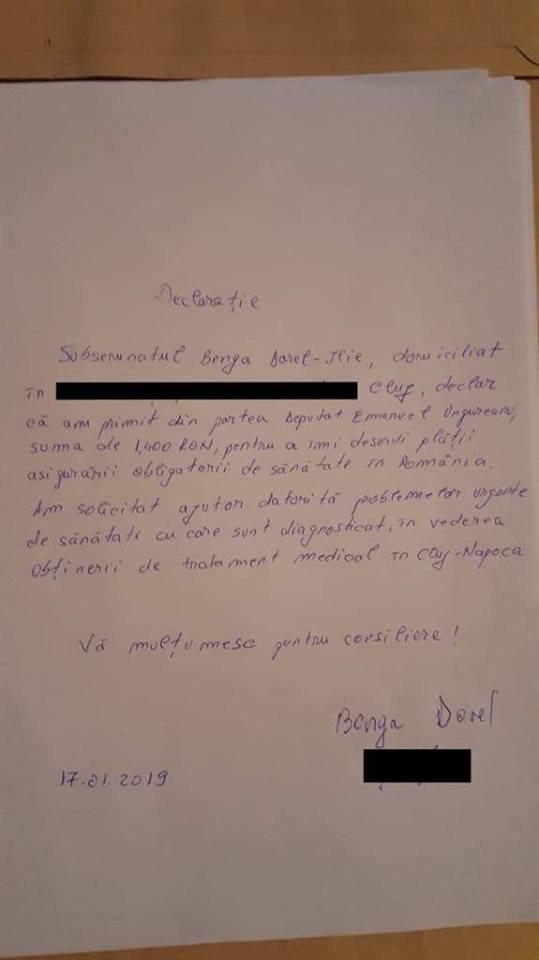 Declarație
Subsemnatul Benga Dorel-Ilie, domiciliat
în Cluj, declar
că am primit din partea Deputat Emanuel Ungureanu,
suma de 1,400 RON, pentru a îmi deservi plății
asigurării obligatorii de sănătate în România.
Am solicitat ajutor datorită problemelor urgente
de sănătate cu care sunt diagnosticat, în vederea
obținerii de tratament medical în Cluj-Napoca
Vă mulțumesc pentru consiliere!
Benga Dorel
17.01.2019